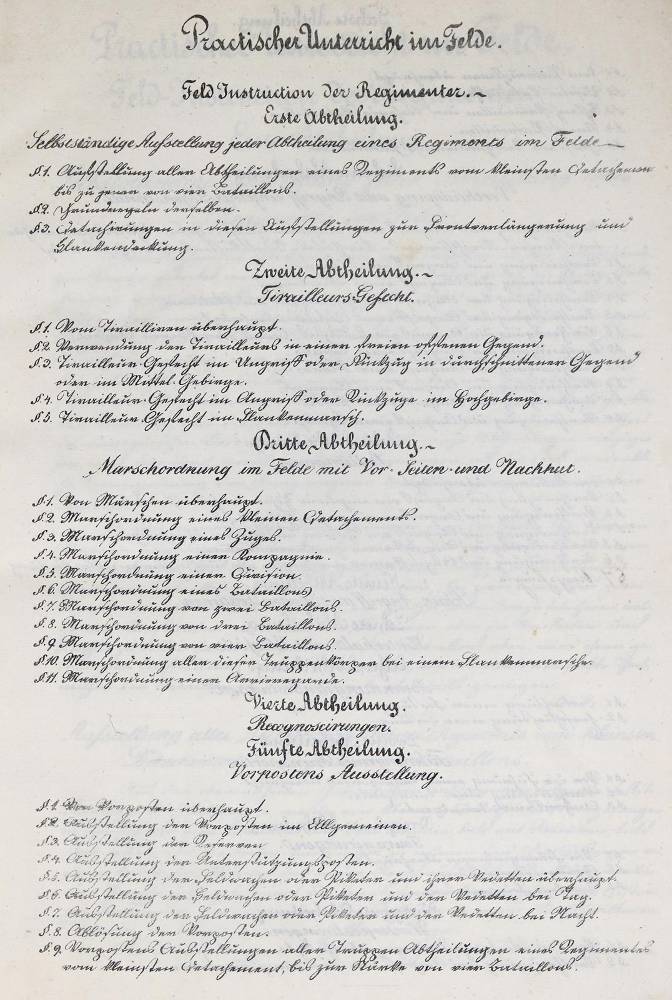 Practischer Unterricht im Felde.
Feld Instruction der Regimenter.~
Erste Abtheilung.
Selbstständige Aufstellung jeder Abtheilung eines Regiments im Felde
§.1. Aufstellung aller Abtheilungen eines Regiments vom kleinsten Detachement
bis zu jenen von vier Bataillons.
§.2. Grundregeln derselben.
§.3. Detachirungen in diesen Aufstellungen zur Frontverlängerung und
Flankendeckung.
Zweite Abtheilung.~
Tirailleurs-Gefecht.
§.1. Vom Tirailliren überhaupt.
§.2. Verwendung der Tirailleurs in einer freien offenen Gegend.
§.3. Tirailleur Gefecht im Angriff oder Rückzug in durchschnittener Gegend
oder im Mittel-Gebirge.
§.4. Tirailleur-Gefecht im Angriff oder Rückzuge im Hochgebirge.
§.5. Tirailleur-Gefecht im Flankenmarsch.
Dritte Abtheilung.~
Marschordnung im Felde mit Vor- Seiten- und Nachhut.
§.1. Von Märschen überhaupt.
§.2. Marschordnung eines kleinen Detachements.
§.3. Marschordnung eines Zuges.
§.4. Marschordnung einer Kompagnie.
§.5. Marschordnung einer Division.
§.6. Marschordnung eines Bataillons
§.7. Marschordnung von zwei Bataillons.
§.8. Marschordnung von drei Bataillons.
§.9. Marschordnung von vier Bataillons.
§.10. Marschordnung aller dieser Truppenkörper bei einem Flankenmarsche.
§.11. Marschordnung einer Arrieregarde.
Vierte Abtheilung.
Recognoscirungen.
Fünfte Abtheilung.
Vorpostens Ausstellung.
§.1. Von Vorposten überhaupt.
§.2. Ausstellung der Vorposten im Allgemeinen.
§.3. Ausstellung der Reserven
§.4. Ausstellung der Unterstützungsposten.
§.5. Ausstellung der Feldwachen oder Piketer und ihrer Vedetten überhaupt.
§.6. Ausstellung der Feldwachen oder Piketer und der Vedetten bei Tag.
§.7. Ausstellung der Feldwachen oder Piketer und der Vedetten bei Nacht.
§.8. Ablösung der Vorposten.
§.9. Vorpostens Ausstellungen aller Truppen Abtheilungen eines Regimentes
vom kleinsten Detachement, bis zur Stärke von vier Bataillons.